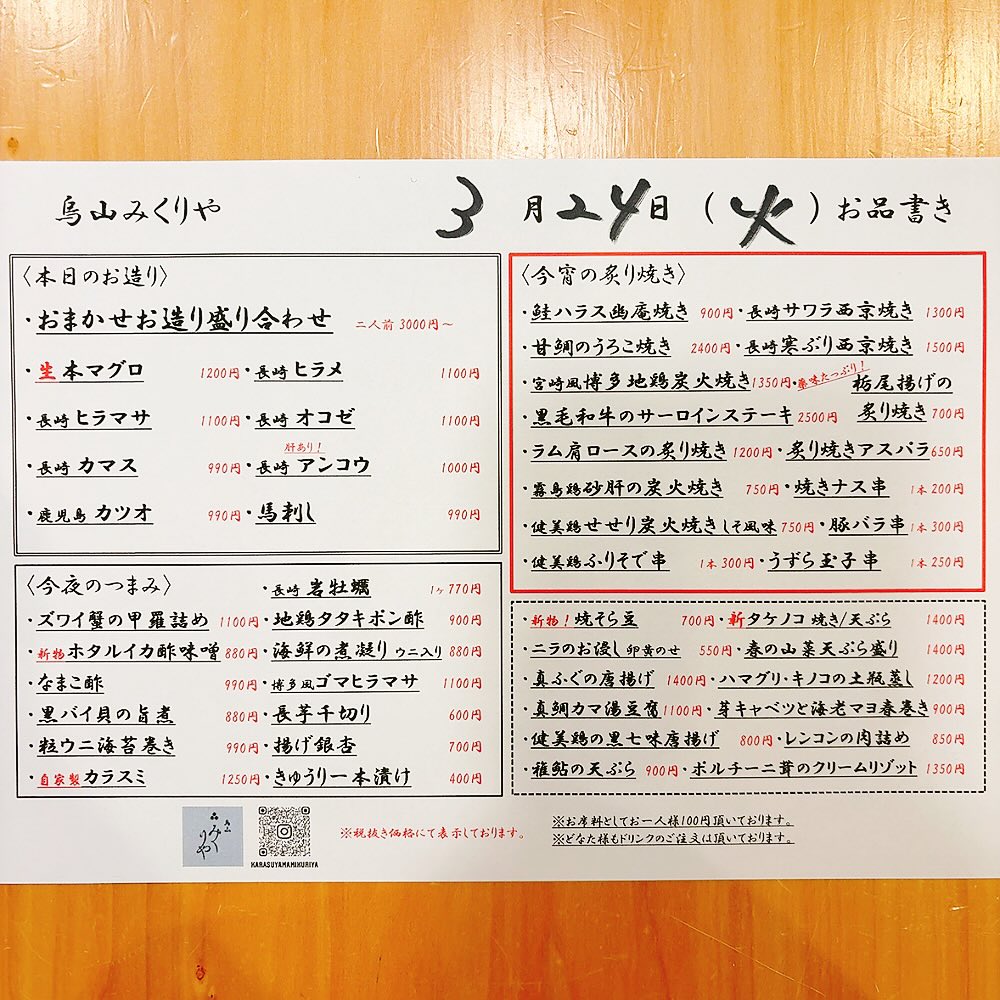 烏山みくりや
3月24日(火)お品書き
〈本日のお造り〉
・おまかせお造り盛り合わせ 二人前 3000円～
・生本マグロ 1200円・長崎 ヒラメ 1100円
・長崎 ヒラマサ 1100円・長崎 オコゼ 1100円
肝あり!
・長崎 カマス 990円・長崎 アンコウ 1000円
・鹿児島 カツオ 990円・馬刺し 990円
〈今夜のつまみ〉 ・長崎 岩牡蠣 1ヶ770円
・ズワイ蟹の甲羅詰め 1100円・地鶏タタキポン酢 900円
・新物ホタルイカ酢味噌 880円・海鮮の煮凝り ウニ入り 880円
・なまこ酢 990円・博多風ゴマヒラマサ 1100円
・黒バイ貝の旨煮 880円・長芋千切り 600円
・粒ウニ海苔巻き 990円・揚げ銀杏 700円
・自家製カラスミ 1250円・きゅうり一本漬け 400円
〈今宵の炙り焼き〉
・鮭ハラス幽庵焼き 900円・長崎サワラ西京焼き 1300円
・甘鯛のうろこ焼き 2400円・長崎寒ぶり西京焼き 1500円
・宮崎風博多地鶏炭火焼き1350円・薬味たっぷり!栃尾揚げの
・黒毛和牛のサーロインステーキ 2500円 炙り焼き 700円
・ラム肩ロースの炙り焼き 1200円・炙り焼きアスパラ650円
・霧島鶏砂肝の炭火焼き 750円・焼きナス串 1本200円
・健美鶏せせり炭火焼きしそ風味 750円・豚バラ串 1本300円
・健美鶏ふりそで串 1本300円・うずら玉子串 1本250円
・新物!焼そら豆 700円・新タケノコ 焼き/天ぷら 1400円
・ニラのお浸し 卵黄のせ 550円・春の山菜天ぷら盛り 1400円
・真ふぐの唐揚げ 1400円・ハマグリ・キノコの土瓶蒸し 1200円
・真鯛カマ湯豆腐1100円・芽キャベツと海老マヨ春巻き900円
・健美鶏の黒七味唐揚げ 800円・レンコンの肉詰め 850円
・稚鮎の天ぷら 900円・ポルチーニ茸のクリームリゾット 1350円
みくりや
KARASUYAMAMIKURIYA
※税抜き価格にて表示しております。
※お席料としてお一人様100円頂いております。
※どなた様もドリンクのご注文は頂いております。